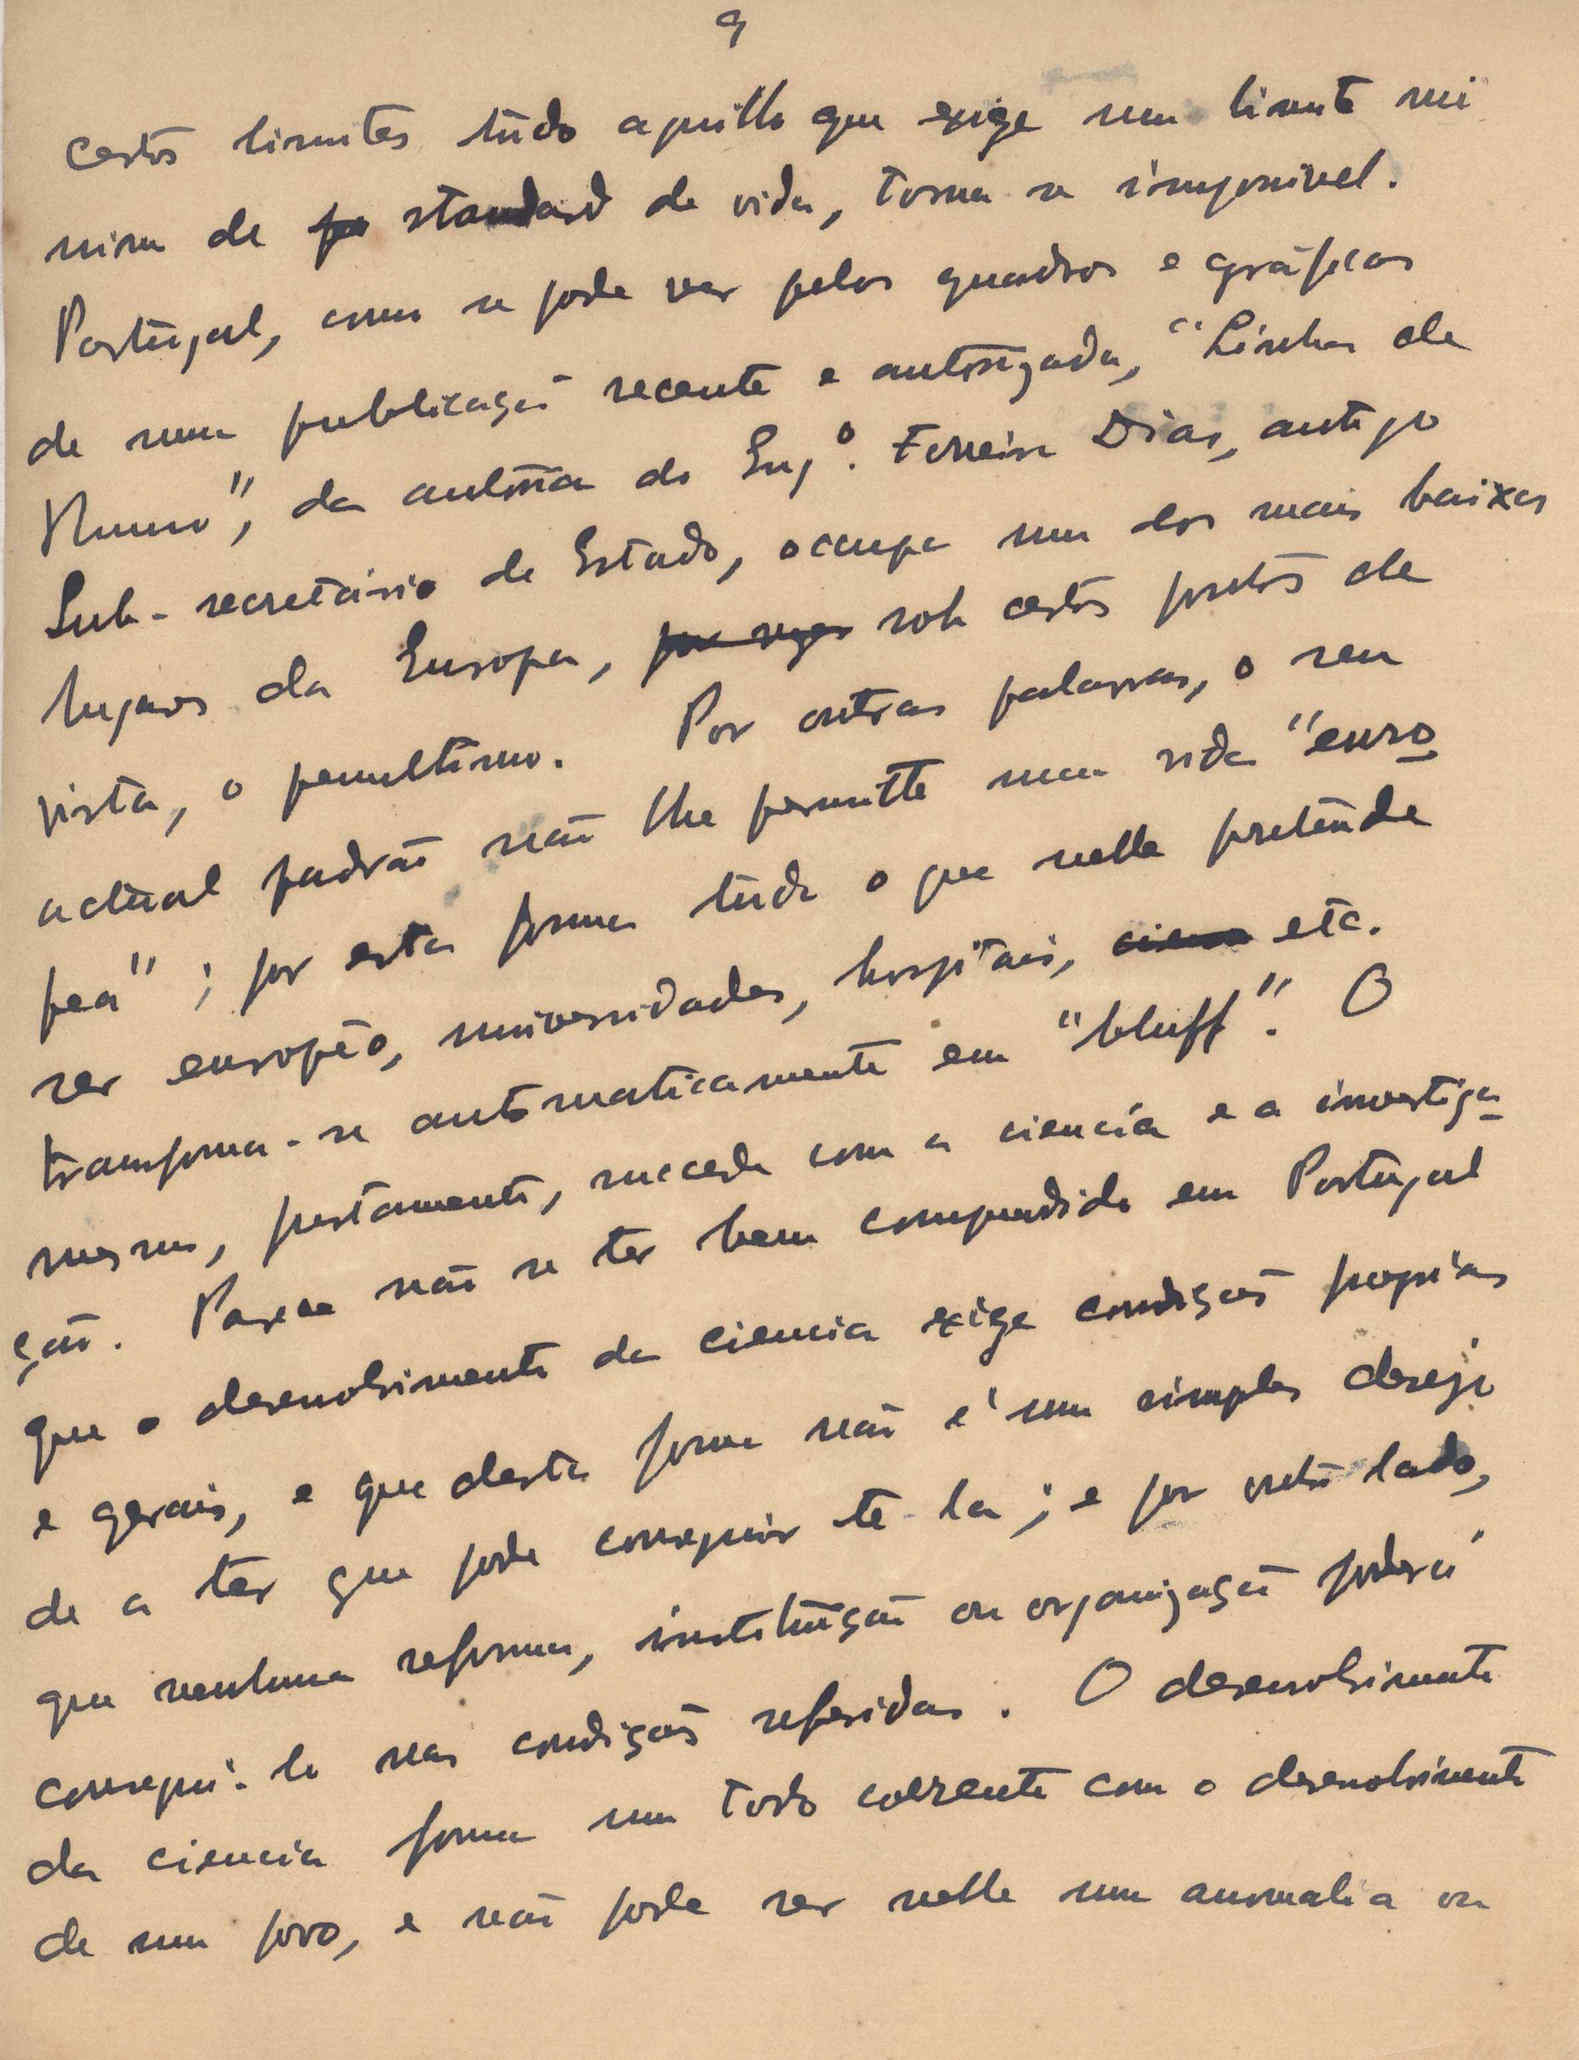 9
certos limites tudo aquillo que exige um limite mi
nimo de pa standard de vida, torna se impossivel.
Portugal, como se pode ver pelos quadros e gráficos
de uma publicação recente e autorizada, "Linha de
Rumo", da autoria do Eng.º Ferreira Dias, antigo
Sub-secretário de Estado, occupa um dos mais baixos
lugares da Europa, por vezes sob certos pontos de
vista, o penultimo. Por outras palavras, o seu
actual padrão não lhe permitte uma vida "euro
pea"; por esta forma tudo o que nelle pretende
ser europêo, universidades, hospitais, cienc etc.
transforma-se automaticamente em "bluff". O
mesmo, justamente, succede com a ciencia e a investiga
ção. Parece não se ter bem comprendido em Portugal
que o desenvolvimento da ciencia exige condições proprias
e gerais, e que desta forma não é um simples desejo
de a ter que pode conseguir te-la; e por outro lado,
que nenhuma reforma, instituição ou organização poderá
consegui-lo nas condições referidas. O desenvolvimento
da ciencia forma um todo coerente com o desenvolvimento
de um povo, e não pode ser nelle uma anomalia ou